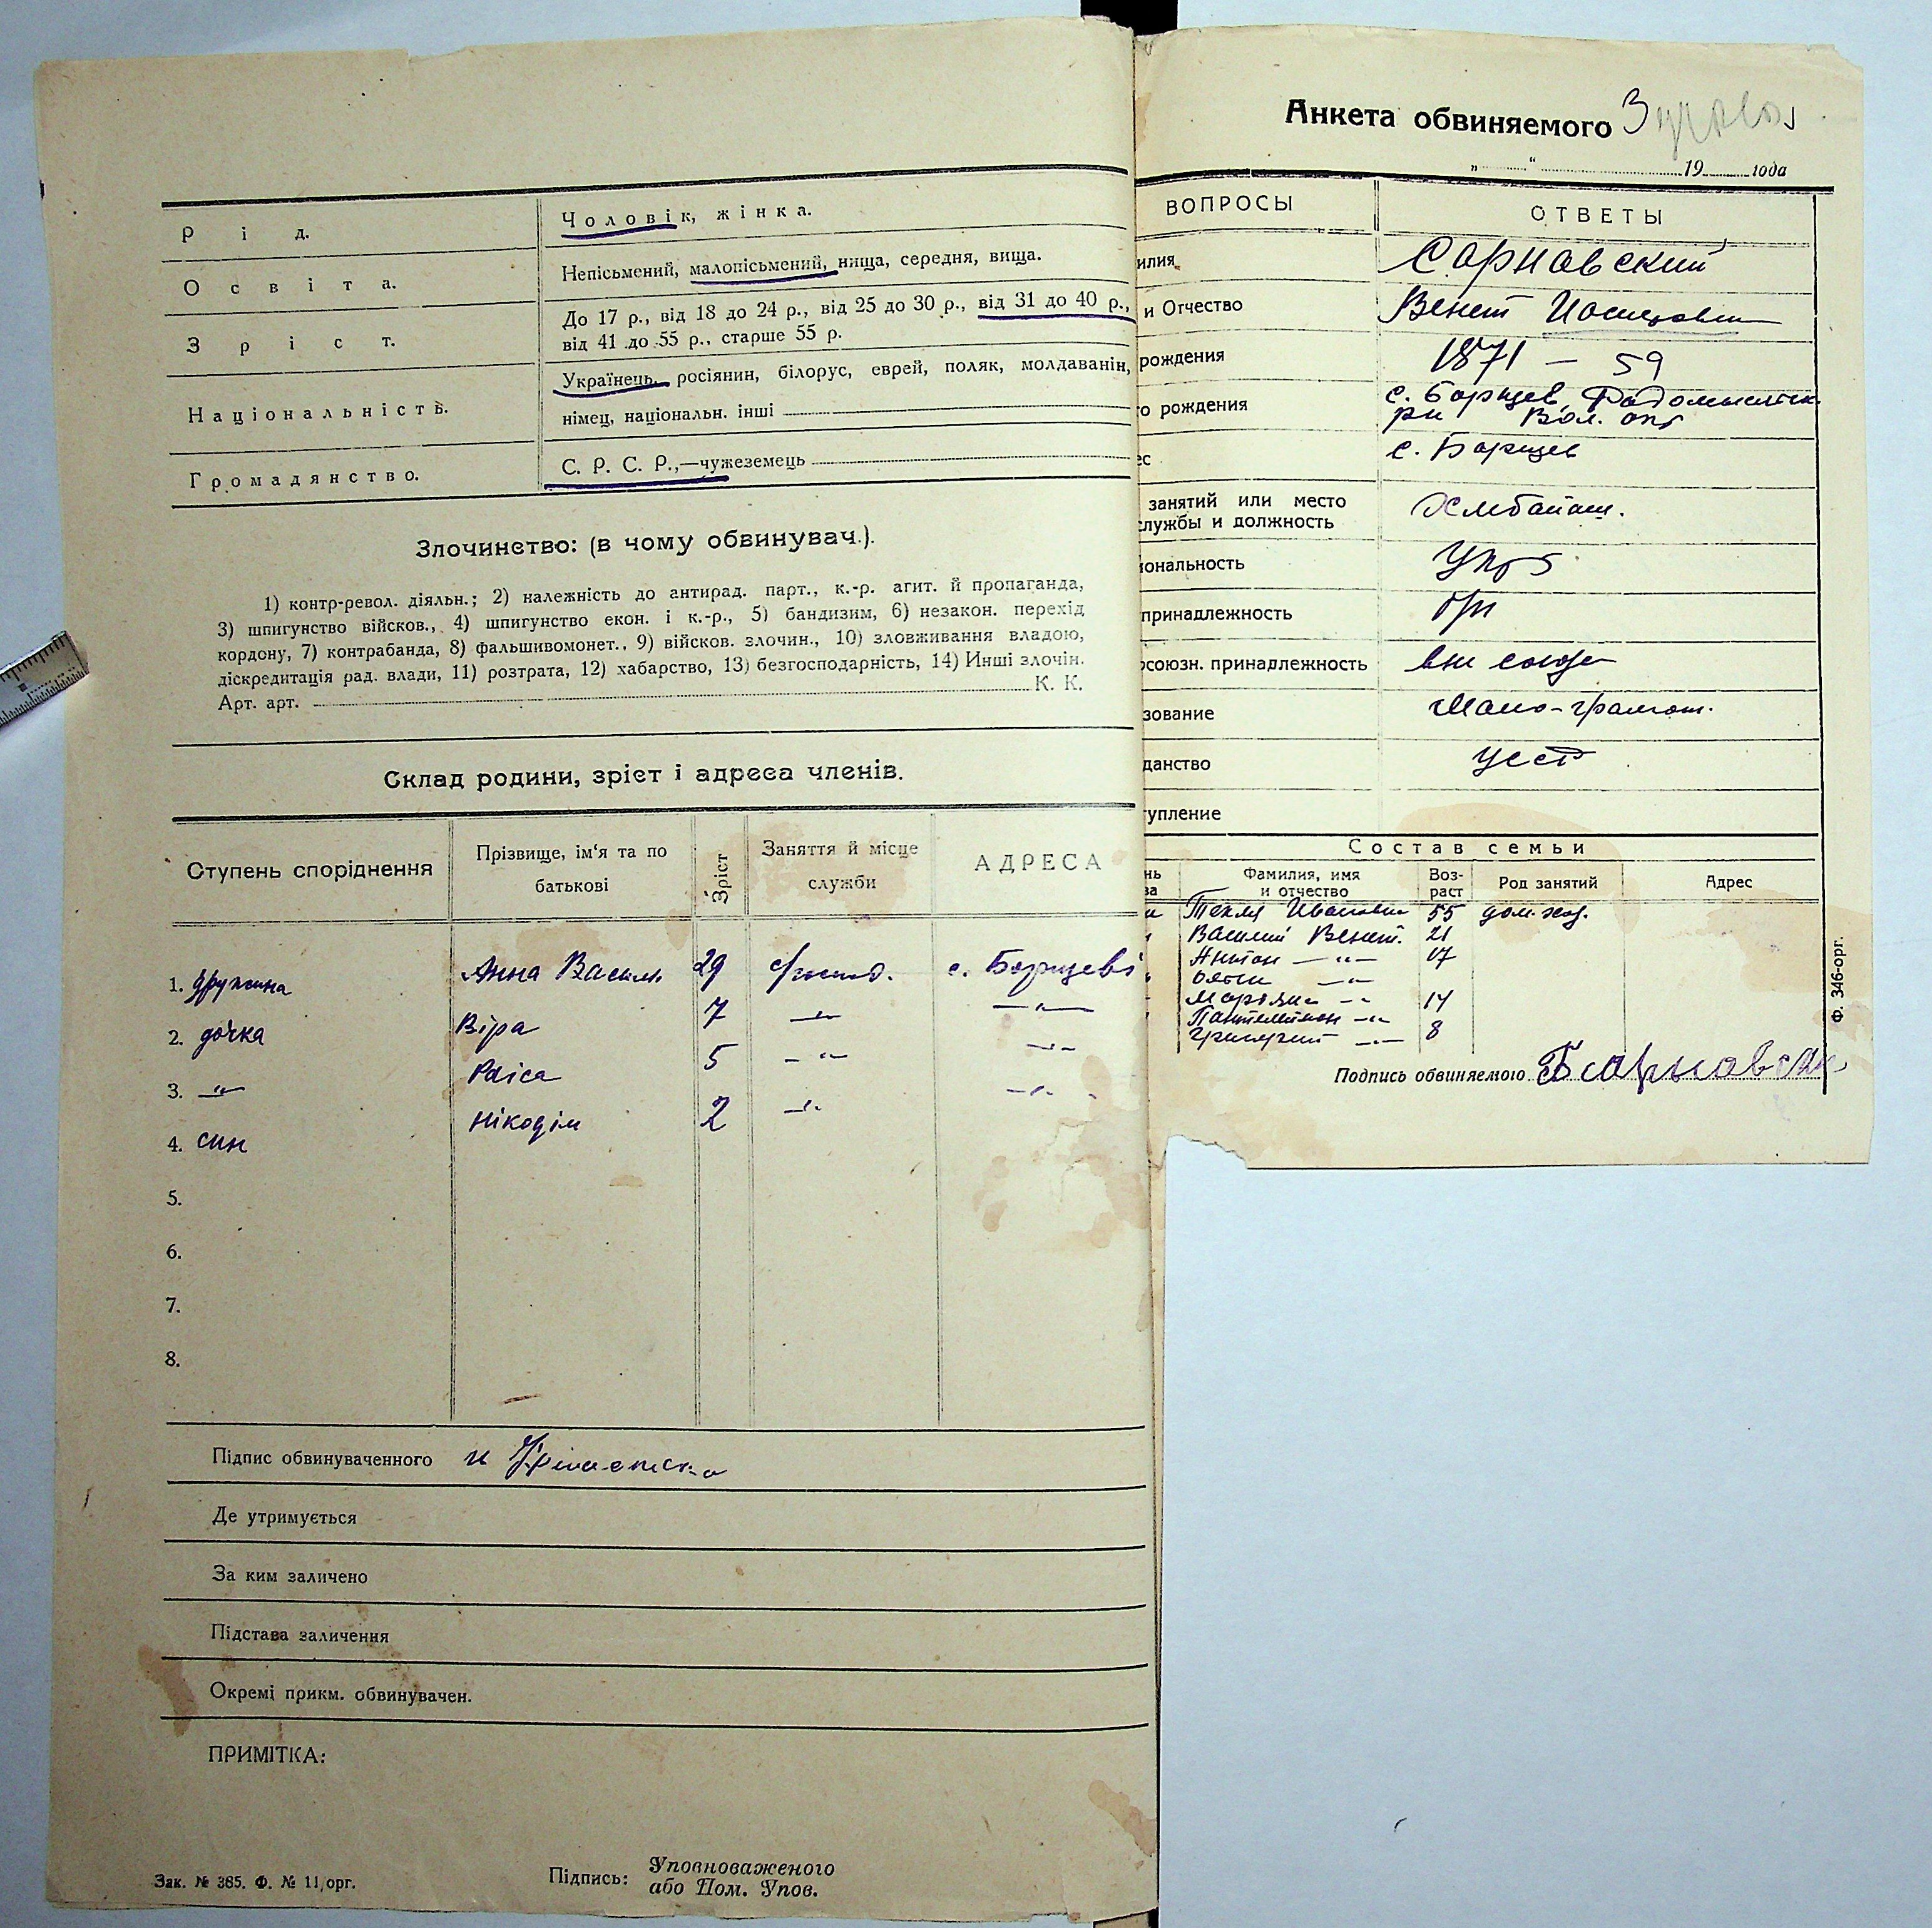 Рід.
Чоловік, жінка.
Освіта.
Непісьмений, малопісьмений, нища, середня, вища.
Зріст.
До 17 р., від 18 до 24 р., від 25 до 30 р., від 31 до 40 р.,
від 41 до 55 р., старше 55 р.
Національність.
Українець, росіянин, білорус, еврей, поляк, молдаванін,
німец, національн. інші
Громадянство.
С. Р. С. Р.,—чужеземець
Злочинство: (в чому обвинувач.).
1) контр-револ. діяльн.; 2) належність до антирад. парт., к.-р. агит. й пропаганда,
3) шпигунство війсков., 4) шпигунство екон. і к.-р., 5) бандизим, 6) незакон. перехід
кордону, 7) контрабанда, 8) фальшивомонет., 9) війсков. злочин., 10) зловживання владою,
діскредитація рад. влади, 11) розтрата, 12) хабарство, 13) безгосподарність, 14) Инші злочін.
Арт. арт. К. К.
Склад родини, зріст і адреса членів.
Ступень споріднення
Прізвище, ім'я та по батькові
Зріст
Заняття й місце служби
АДРЕСА
1. дружина Анна Васил. 29 с. Борщеві
2. дочка Віра 7 —"— —"—
3. —"— Раіса 5 —"— —"—
4. син Нікодім 2 —"— —"—
5.
6.
7.
8.
Підпис обвинуваченного
Де утримується
За ким заличено
Підстава заличення
Окремі прикм. обвинувачен.
ПРИМІТКА:
Зак. № 385. Ф. № 11/орг.
Підпись: Уповноваженого
або Пом. Упов.
Анкета обвиняемого
„ “ 19 года
ВОПРОСЫ
ОТВЕТЫ
илия
Сарнавский
и Отчество
Венет
рождения
1871 — 59
о рождения
с. Борщев Радомысльск.
рн Вол. окр
ес
с. Борщев
занятий или место
службы и должность
Хлебопаш.
иональность
Укр
принадлежность
б/п
союзн. принадлежность
вне союза
зование
Мало-грамот.
данство
УССР
тупление
Состав семьи
Фамилия, имя
и отчество
Воз-
раст
Род занятий
Адрес
Текля Ивановна 55 дом. хоз.
Василий Венет. 21
Антон —"— 17
—"—
Марьяна —"— 14
Пантелеймон —"—
Григорий —"— 8
Подпись обвиняемого
Ф. 346-орг.